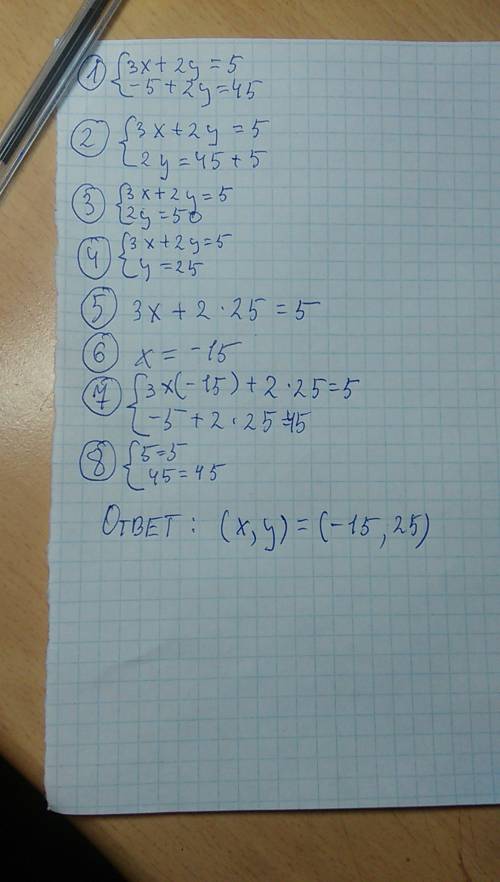 ① {3x + 2y = 5
{-5 + 2y = 45
② {3x + 2y = 5
{2y = 45 + 5
③ {3x + 2y = 5
{2y = 50
④ {3x + 2y = 5
{y = 25
⑤ 3x + 2 · 25 = 5
⑥ x = -15
⑦ {3x(-15) + 2 · 25 = 5
{-5 + 2 · 25 = 45
⑧ {5 = 5
{45 = 45
ОТВЕТ : (x, y) = (-15, 25)